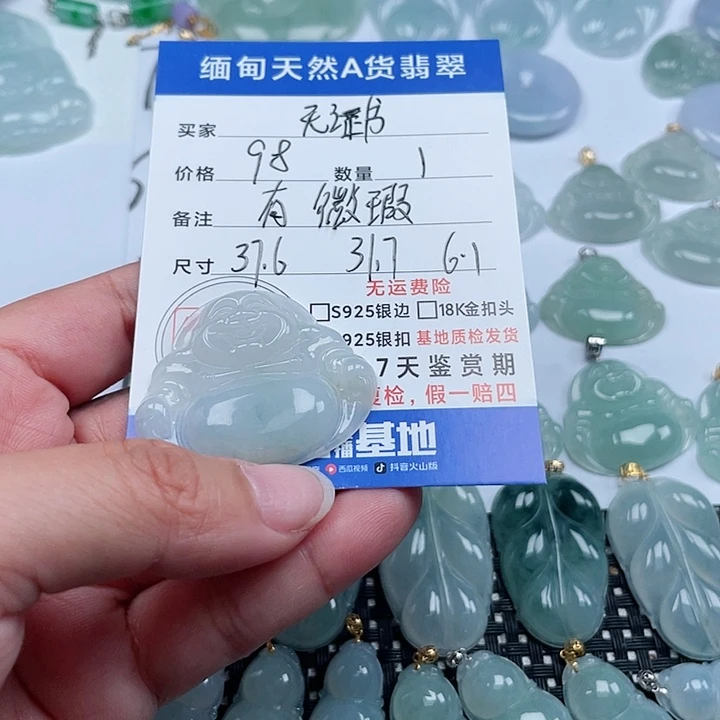 缅甸天然A货翡翠
买家 无证书
价格 98 数量 1
备注 有微瑕
尺寸 37.6 31.7 6.1
无运费险
□S925银边 □18K金扣头
925银扣 基地质检发货
7天鉴赏期
复检,假一赔四
播基地
西瓜视频 抖音火山版